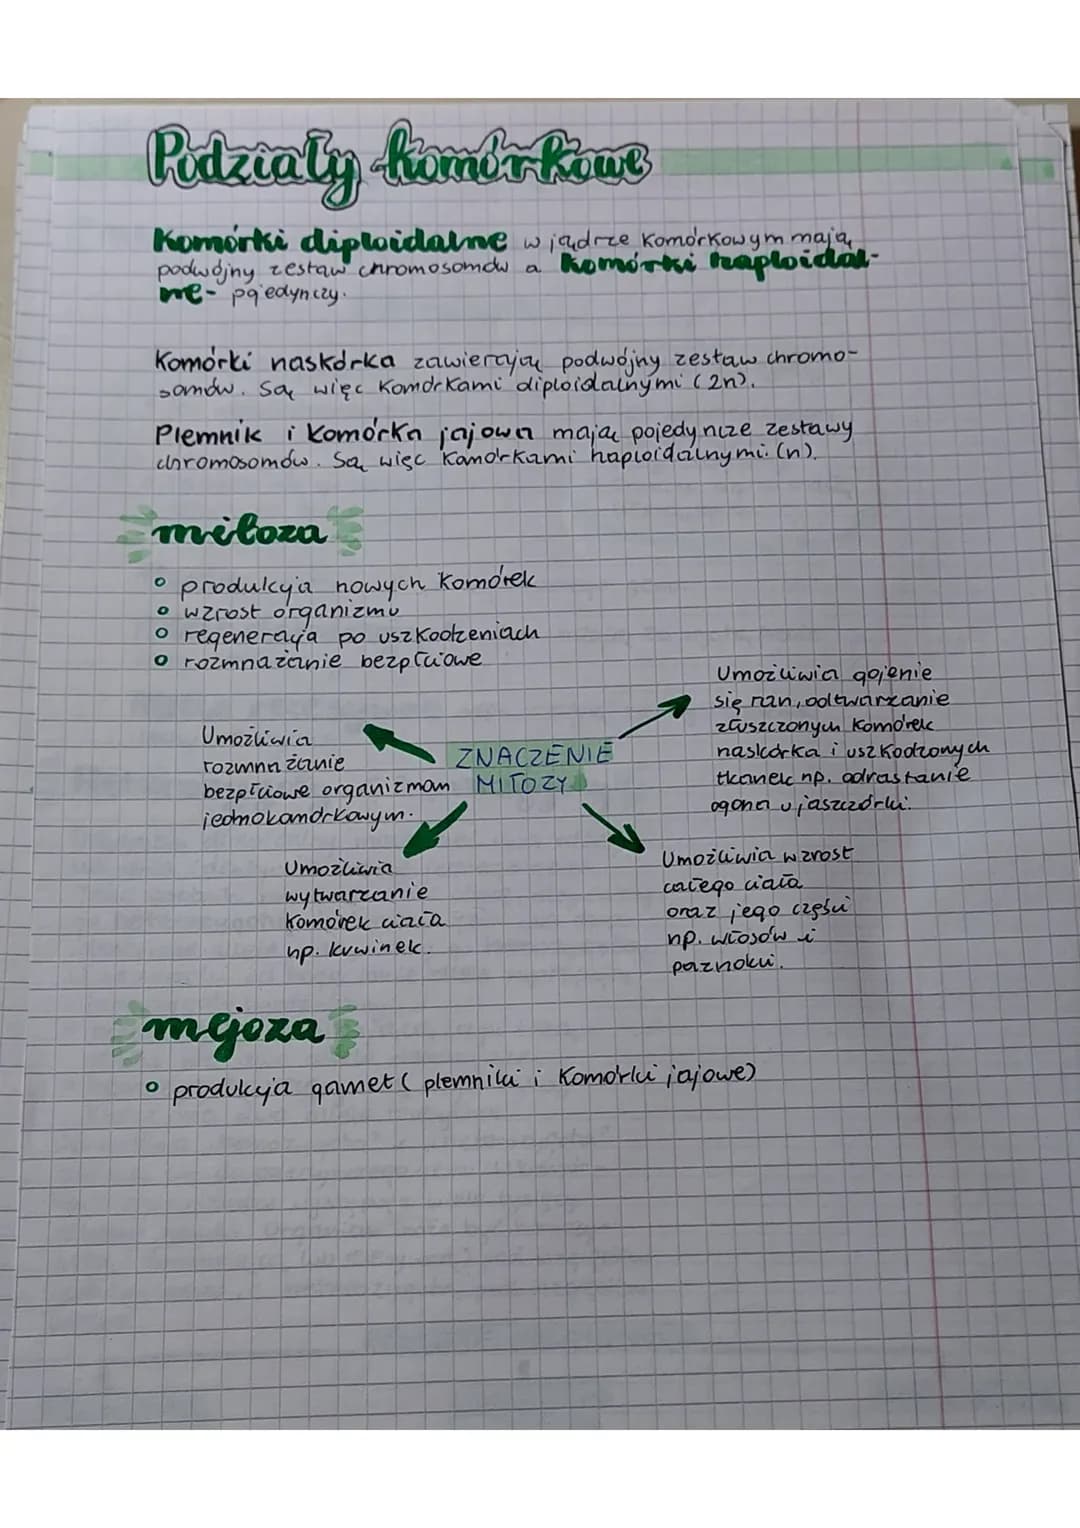 Podziały komórkowe
Komórki diploidalne w jądrze komórkowym mają
podwójny zestaw chromosomów a komórki haploidal-
ne- pojedynczy.
Komórki naskórka zawierają podwójny zestaw chromo-
somów. Są więc komórkami diploidalnymi (2n).
Plemnik i komórka jajowa mają pojedyncze zestawy
chromosomów. Są więc komórkami haploidalnymi (n).
mitoza
produkcja nowych komórek
wzrost organizmu
regeneracja po uszkodzeniach
rozmnażanie bezpłciowe
ZNACZENIE
MITOZY
Umożliwia
rozmnażanie
bezpłciowe organizmom
jednokomórkowym.
Umożliwia gojenie
się ran, odtwarzanie
złuszczonych komórek
naskórka i uszkodzonych
tkanek np. odrastanie
ogona u jaszczórki.
Umożliwia
wytwarzanie
komórek ciała
np. krwinek.
Umożliwia wzrost
całego ciała
oraz jego części
np. włosów i
paznokci.
mejoza
produkcja gamet ( plemniki i komórki jajowe)